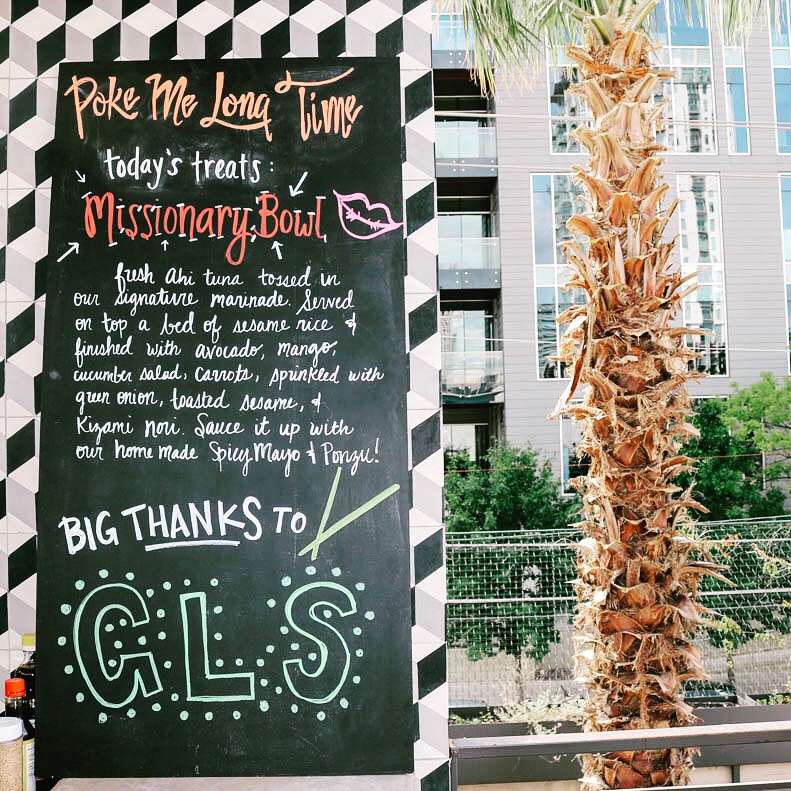 Poke Me Long Time
today's treats:
Missionary Bowl
fresh Ahi tuna tossed in
our signature marinade. Served
on top a bed of sesame rice &
finished with avocado, mango,
cucumber salad, carrots, sprinkled with
green onion, toasted sesame, &
Kizami nori. Sauce it up with
our home made Spicy Mayo & Ponzu!
BIG THANKS TO
GLS